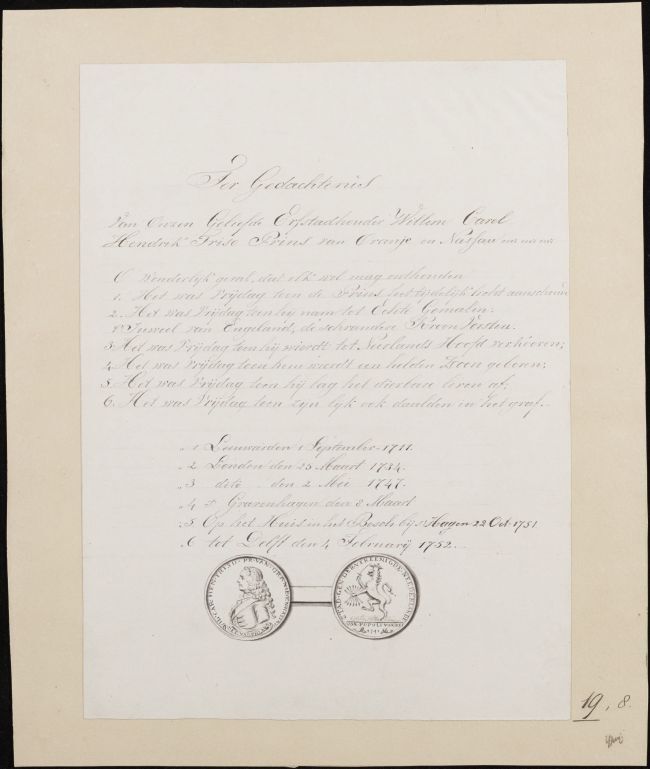 Ter Gedachtenis
Van Onzen Geliefde Erfstadhouder Willem Carel
Hendrik Friso Prins van Oranje en Nassau
O Wonderlijk geval, dat elk wel mag onthouden
1. Het was Vrijdag toen de Prins het tijdelijk licht aanschouw
2. Het was Vrijdag toen hij nam tot Echte Gemalin;
't Juweel van Engeland, de schrandere Kroon Vorstin.
3 Het was Vrijdag toen hij wierdt tot Neerlands Hoofd verkooren;
4. Het was Vrijdag toen hem wierdt een helden Zoon geboren;
5. Het was Vrijdag toen hij lag het dierbare leven af;
6. Het was Vrijdag toen zijn lijk ook daalden in het graf.
1 Leeuwarden 1 September 1711.
2 Londen den 25 Maart 1734.
3 dito den 2 Mei 1747.
4 's Gravenhagen den 8 Maart
5 Op het Huis in het Bosch bij 's Hagen 22 Oct 1751
6 tot Delft den 4 Februarij 1752.
VOX POPULI VOX DEI
1747
19, 8.